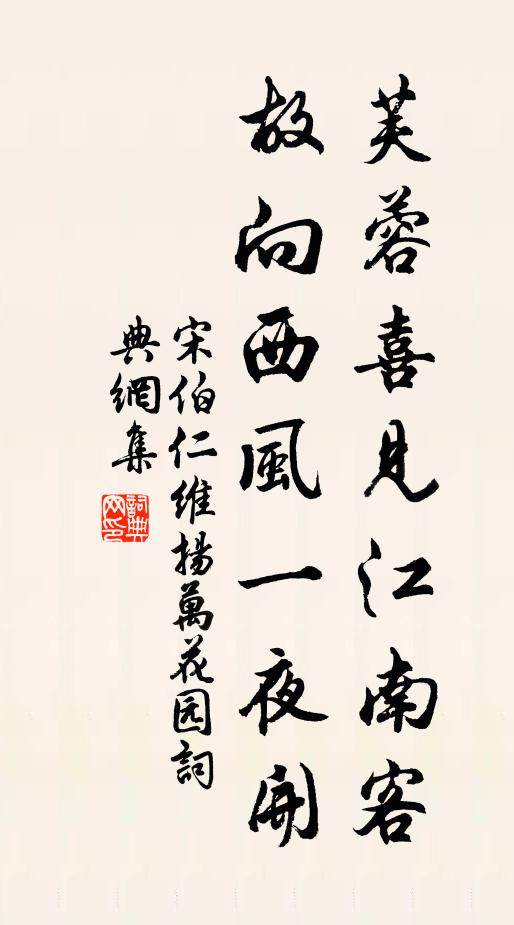 芙蓉喜見江南客
故向西風一夜開
宋伯仁維揚萬花园詞
典網集
詞典
网印